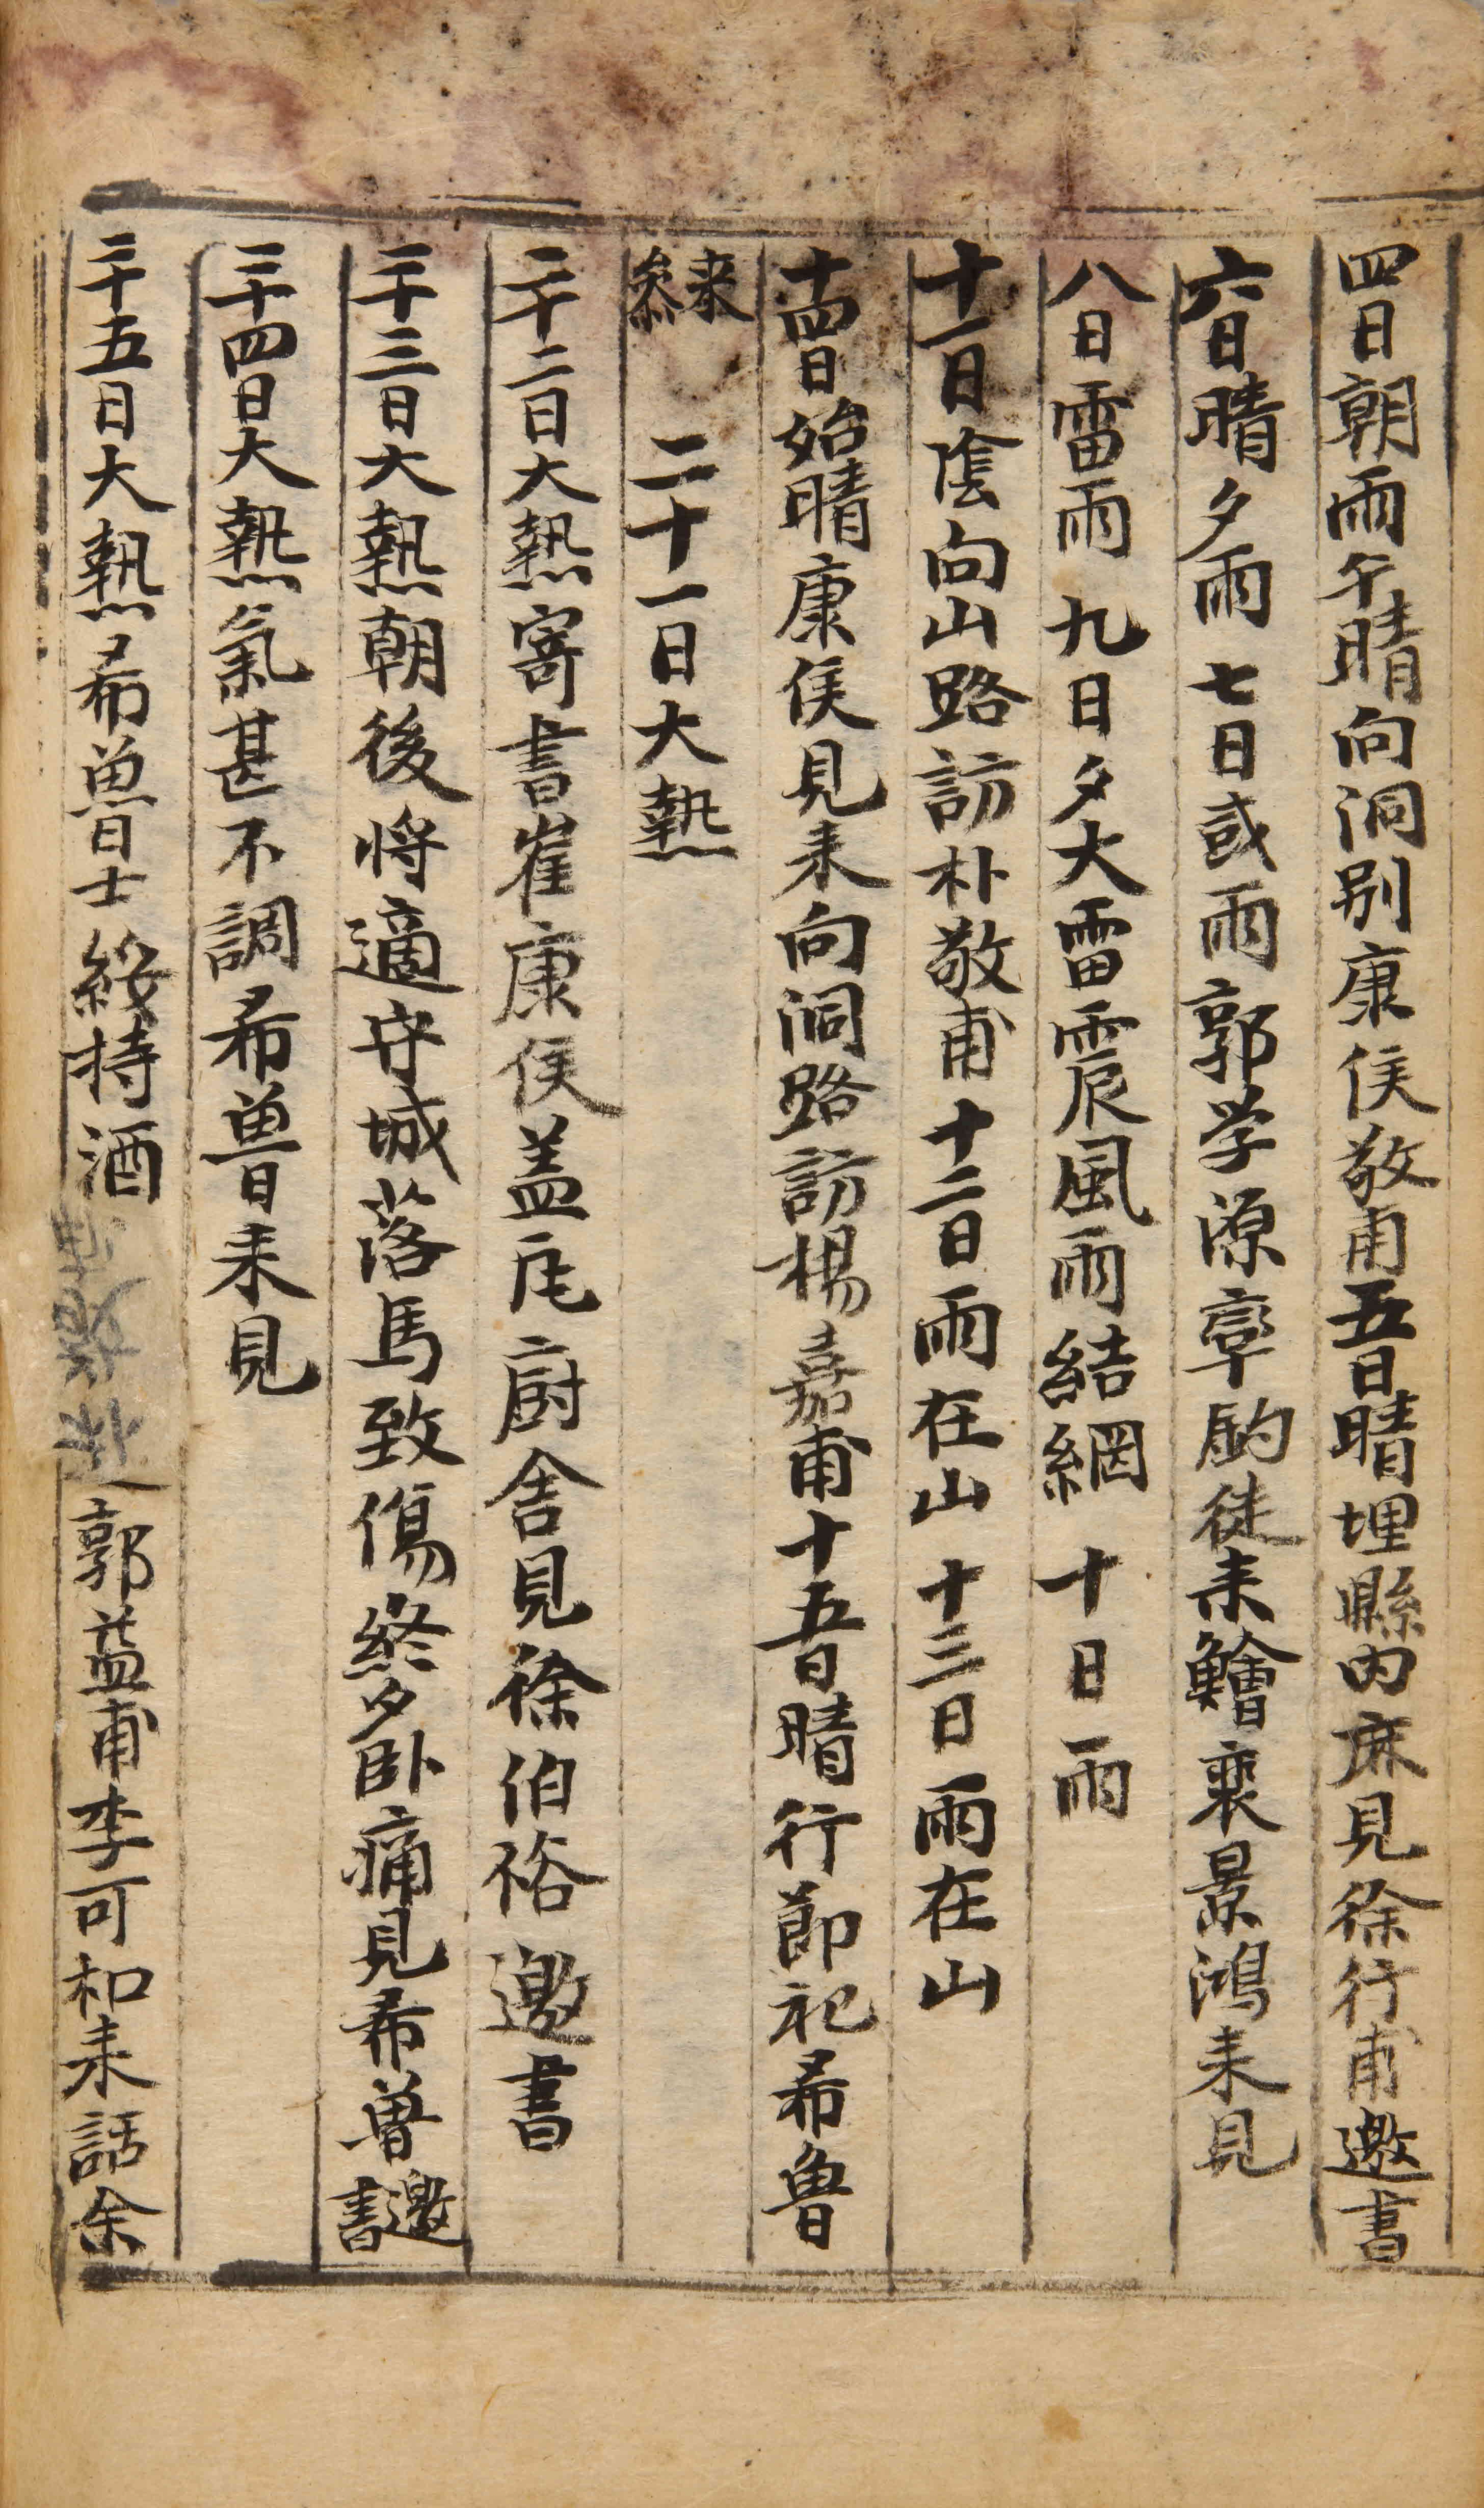 四日朝雨午晴向洞別康侯敬甫五日晴埋縣內麻見徐行甫邀書
六日晴夕雨 七日或雨郭学源章酌徒来鱠裵景鴻来見
八日雷雨 九日夕大雷震風雨結網 十日雨
十一日陰向山路訪朴敬甫十二日雨在山 十三日雨在山
十四日始晴康侯見来向洞路訪楊嘉甫十五日晴行節祀希魯
来參 二十一日大熱
二十二日大熱寄書崔康侯盖瓦廚舍見徐伯裕邀書
二十三日大熱朝後將適守城落馬致傷終夕卧痛見希魯邀書
二十四日大熱氣甚不調希魯来見
二十五日大熱希魯士綏持酒 郭益甫李可和来話余